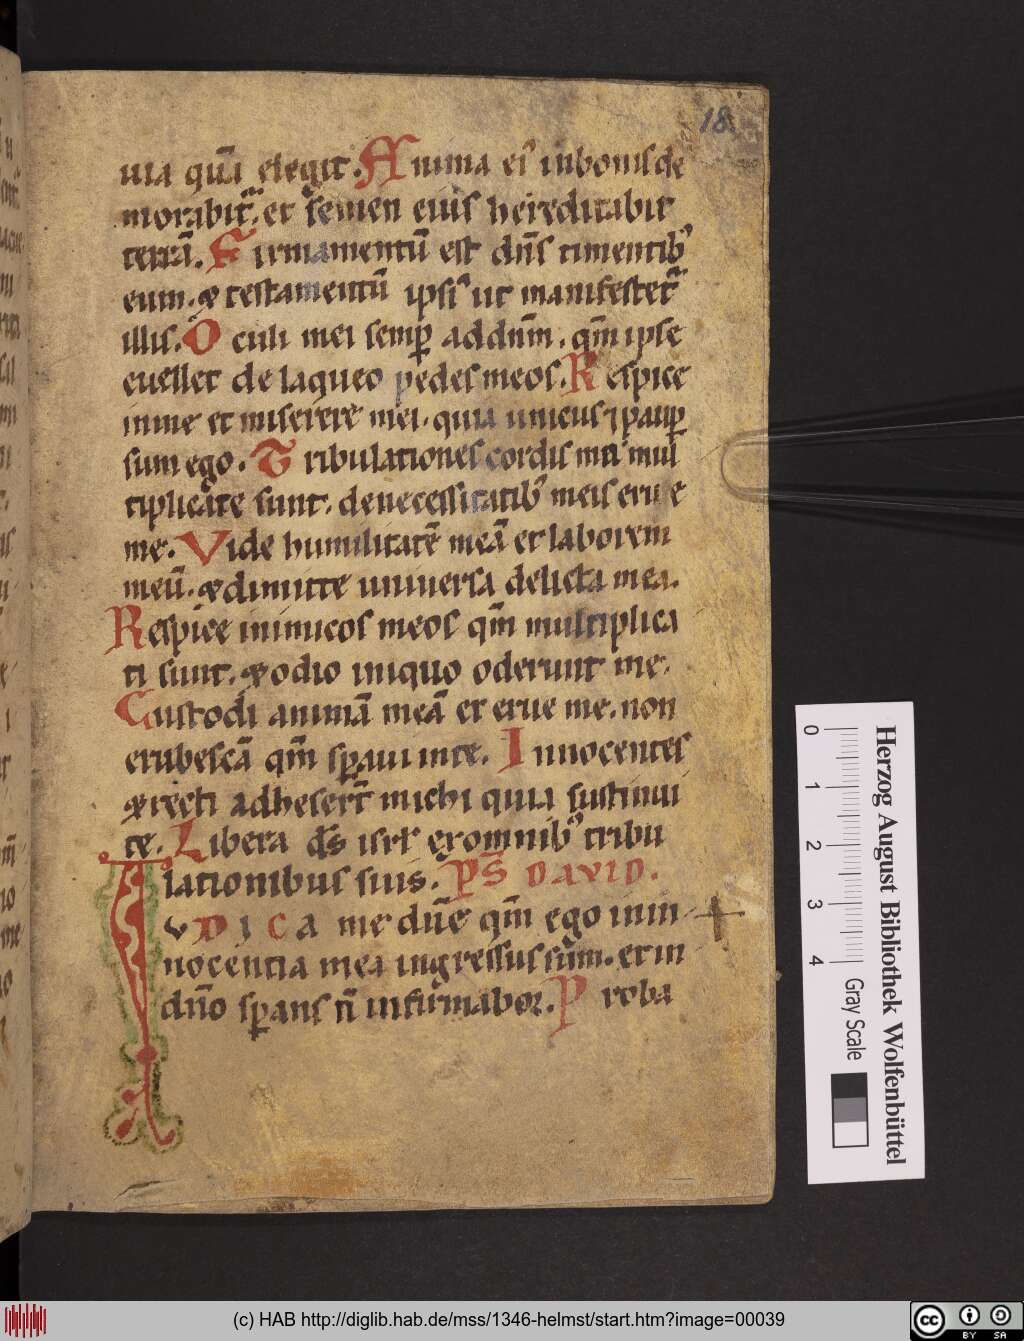 18.
uia quā elegit. Anima ei᷒ inbonis de
morabit᷑. et semen eius hereditabit
terrā. Firmamentū est dn̄s timentib᷒
eum. & testamentū ipsi᷒ ut manifestet᷑
illis. Oculi mei semꝑ addnm̄. qm̄ ipse
euellet de laqueo pedes meos. Respice
inme et miserere mei. quia unicus ⁊ pauꝑ
sum ego. Tribulationes cordis mei mul
tiplicate sunt. denecessitatib᷒ meis erue
me. Vide humilitatē meā et laborem
meū. & dimitte uniuersa delicta mea.
Respice inimicos meos qm̄ multiplica
ti sunt. & odio iniquo oderunt me.
Custodi animā meā et erue me. non
erubescā qm̄ sꝑaui inte. Innocentes
& recti adhesert̄ michi quia sustinui
te. Libera ds̄ isrł exomnib᷒ tribu
lationibus suis. Ps̄ DAVID.
IVDICA me dn̄e qm̄ ego inin
nocentia mea ingressus sum. et in
dn̄o sꝑans n̄ infirmabor. Proba
Herzog August Bibliothek Wolfenbüttel
0 1 2 3 4
Gray Scale
(c) HAB http://diglib.hab.de/mss/1346-helmst/start.htm?image=00039
cc BY SA